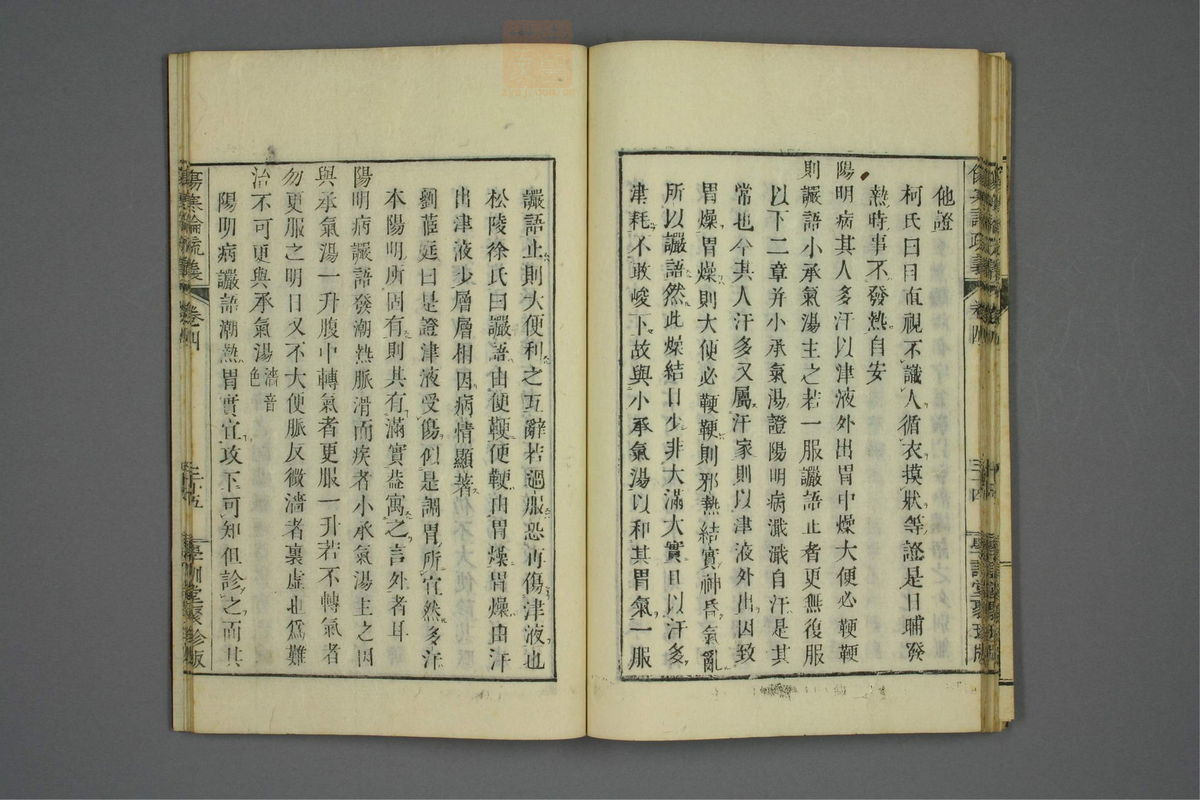 他證
柯氏曰曰直視不識人循衣摸狀等證是日晡發
熱時事不發熱自安
陽明病其人多汗以津液外出胃中燥大便必鞕鞕
則讝語小承氣湯主之若一服讝語止者更無復服
以下二章并小承氣湯證陽明病濈濈自汗是其
常也今其人汗多又屬汗家則以津液外出因致
胃燥胃燥則大便必鞕鞕則邪熱結實神昏氣亂
所以讝語然此燥結日少非大滿大實且以汗多
津耗不敢峻下故與小承氣湯以和其胃氣一服
讝語止則大便利之互辭若過服恐再傷津液也
松陵徐氏曰讝語由便鞕便鞕由胃燥胃燥由汗
出津液少層層相因病情顯著
劉茝庭曰是證津液受傷似是調胃所宜然多汗
本陽明所固有則其有滿實葢寓之言外者耳
陽明病讝語發潮熱脈滑而疾者小承氣湯主之因
與承氣湯一升腹中轉氣者更服一升若不轉氣者
勿更服之明日又不大便脈反微濇者裏虛也爲難
治不可更與承氣湯 濇音色
陽明病讝語潮熱胃實宜攻下可知但診之而其
傷寒論疏義 卷四 三十五 學訓堂聚珍版